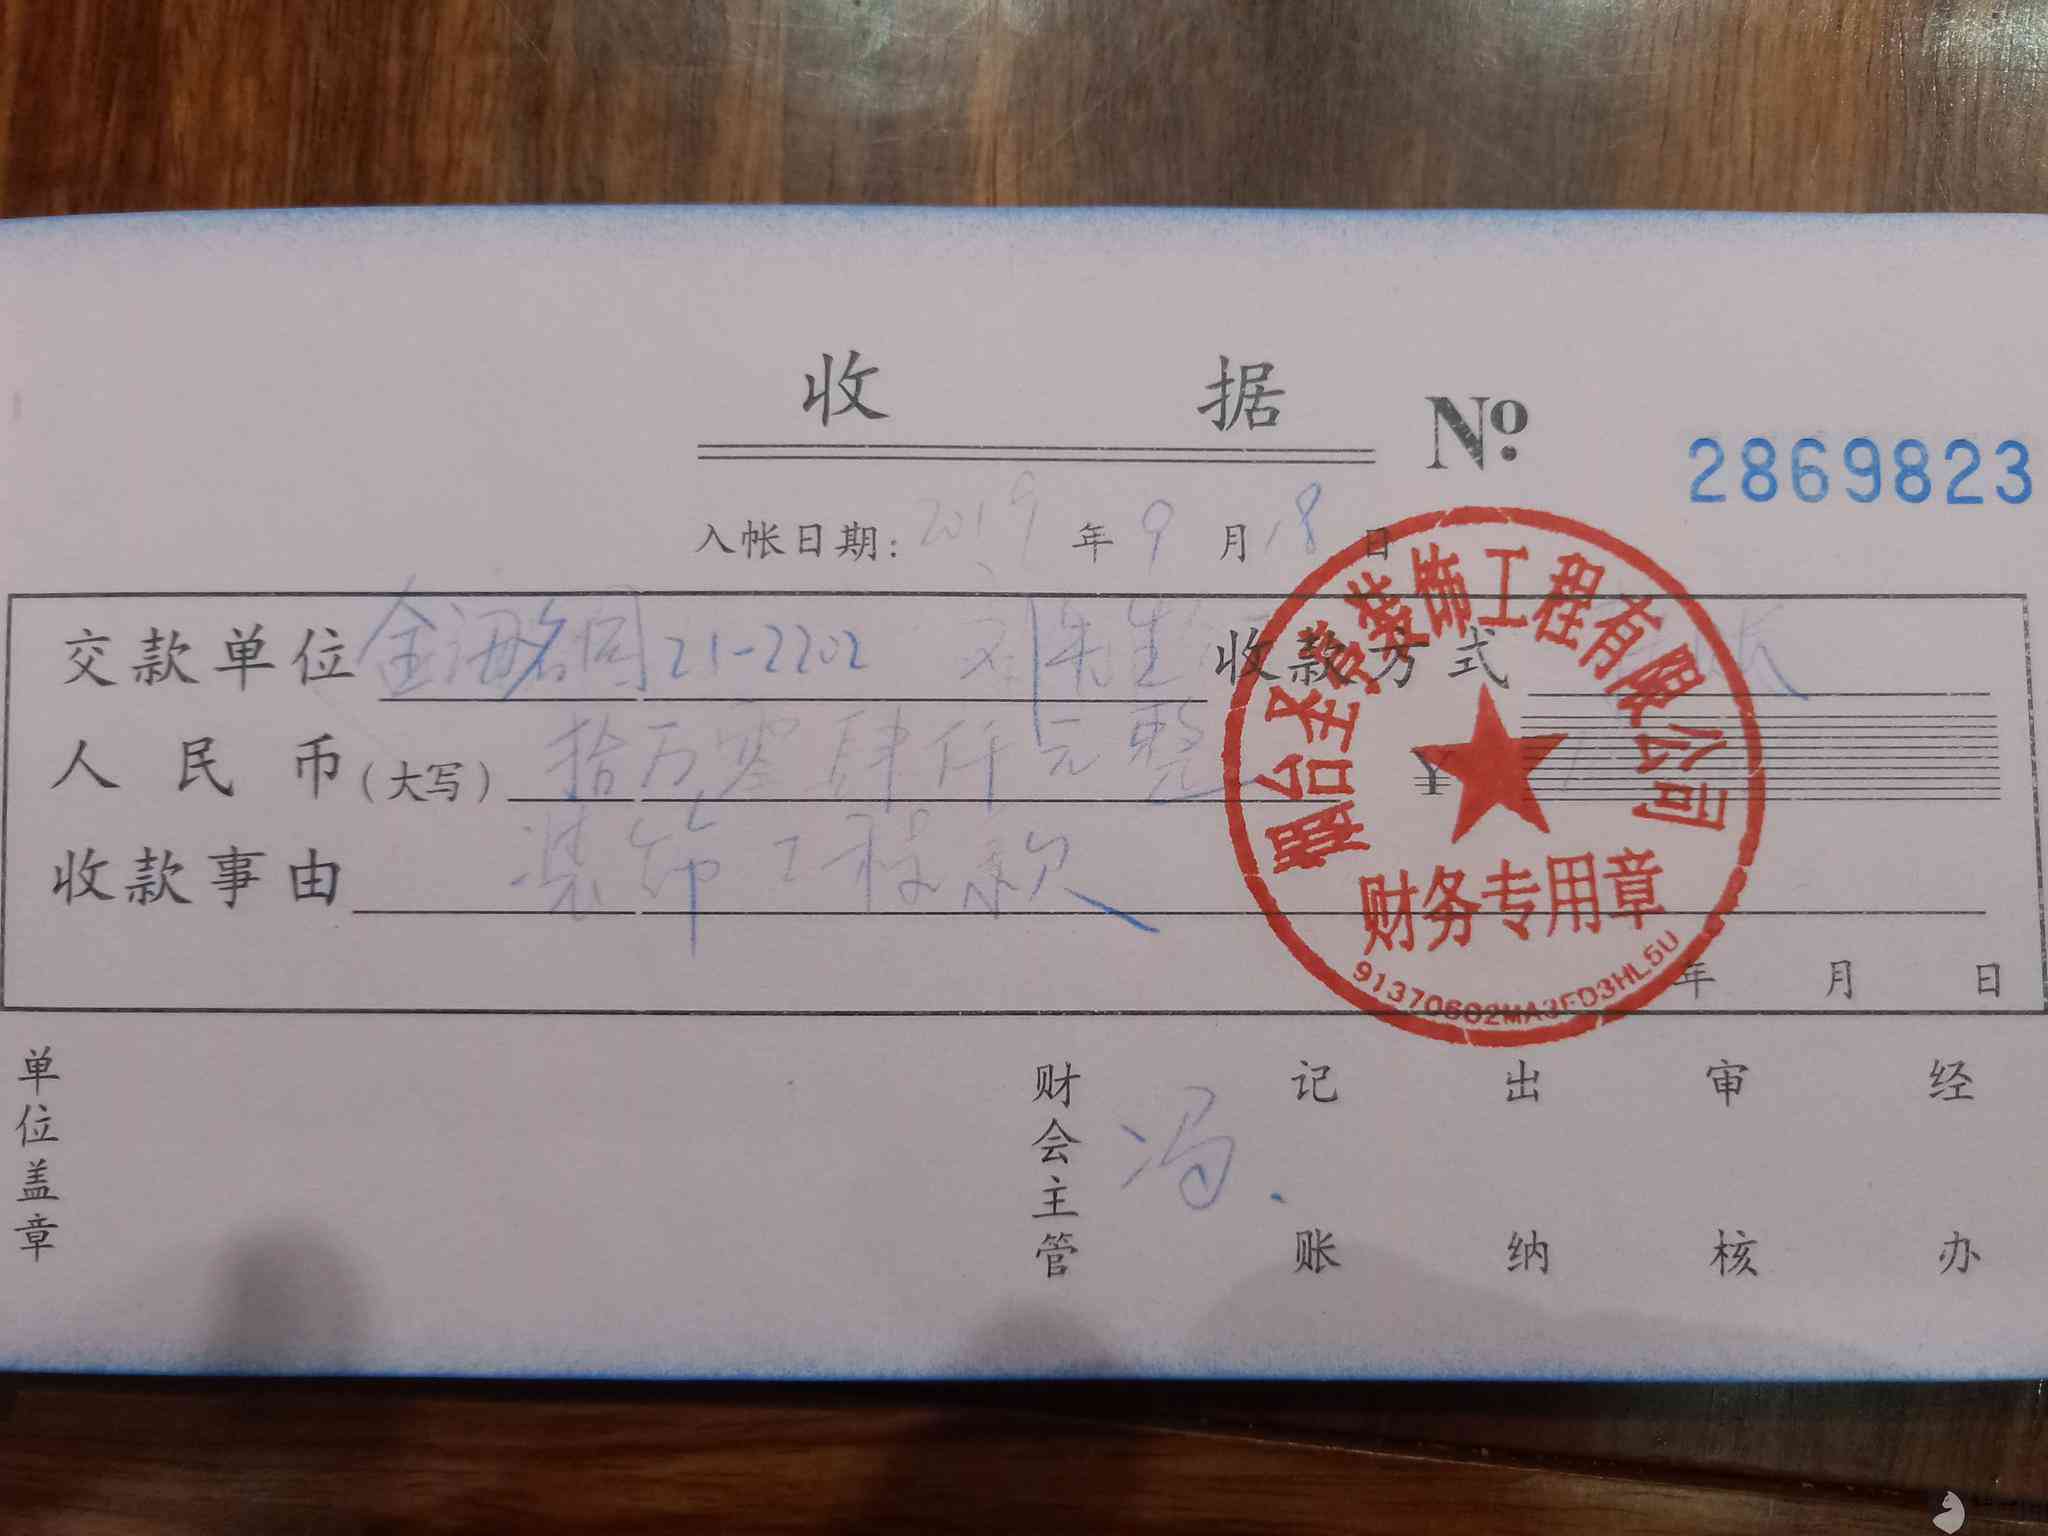 收 据 № 2869823
入帐日期: 2019 年 9 月 18 日
交款单位 金海名园 21-2202 刘先生 收款方式
人民币(大写) 拾万零肆仟元整 ¥
收款事由 装饰工程款
年 月 日
装饰工程有限公司
财务专用章
91370602MA3FD3HL5U
单位盖章 财会主管 冯 记账 出纳 审核 经办